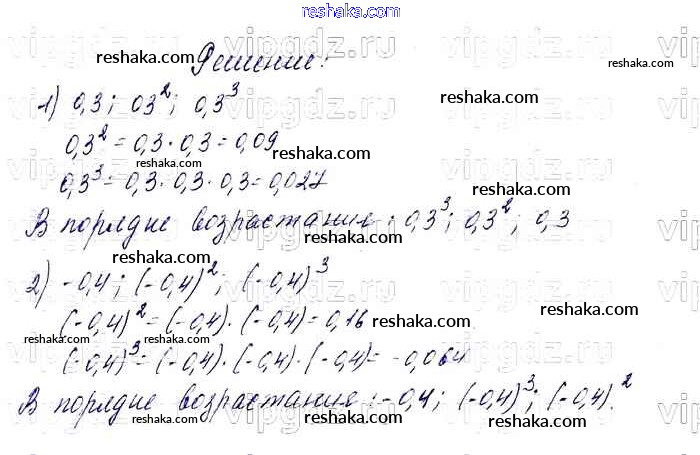 reshaka.com
reshaka.com
Решение:
reshaka.com
1) 0,3; 03²; 0,3³
reshaka.com
0,3² = 0,3 · 0,3 = 0,09
reshaka.com
reshaka.com
0,3³ = 0,3 · 0,3 · 0,3 = 0,027
reshaka.com
В порядке возрастания: 0,3³; 0,3²; 0,3
reshaka.com
2) -0,4; (-0,4)²; (-0,4)³
reshaka.com
(-0,4)² = (-0,4) · (-0,4) = 0,16
reshaka.com
reshaka.com
reshaka.com
(-0,4)³ = (-0,4) · (-0,4) · (-0,4) = -0,064
reshaka.com
reshaka.com
В порядке возрастания: -0,4; (-0,4)³; (-0,4)².
reshaka.com
reshaka.com
vipgdz.ru